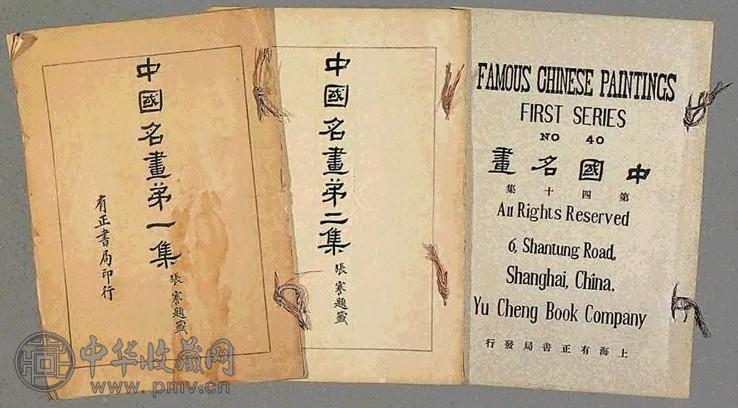 中國名畫第一集
張謇題籤
有正書局印行
中國名畫第二集
張謇題籤
FAMOUS CHINESE PAINTINGS
FIRST SERIES
NO 40
畫名國中
集十四第
All Rights Reserved
6, Shantung Road,
Shanghai, China.
Yu Cheng Book Company
行發局書正有海上
中华收藏网
www.pmv.cn